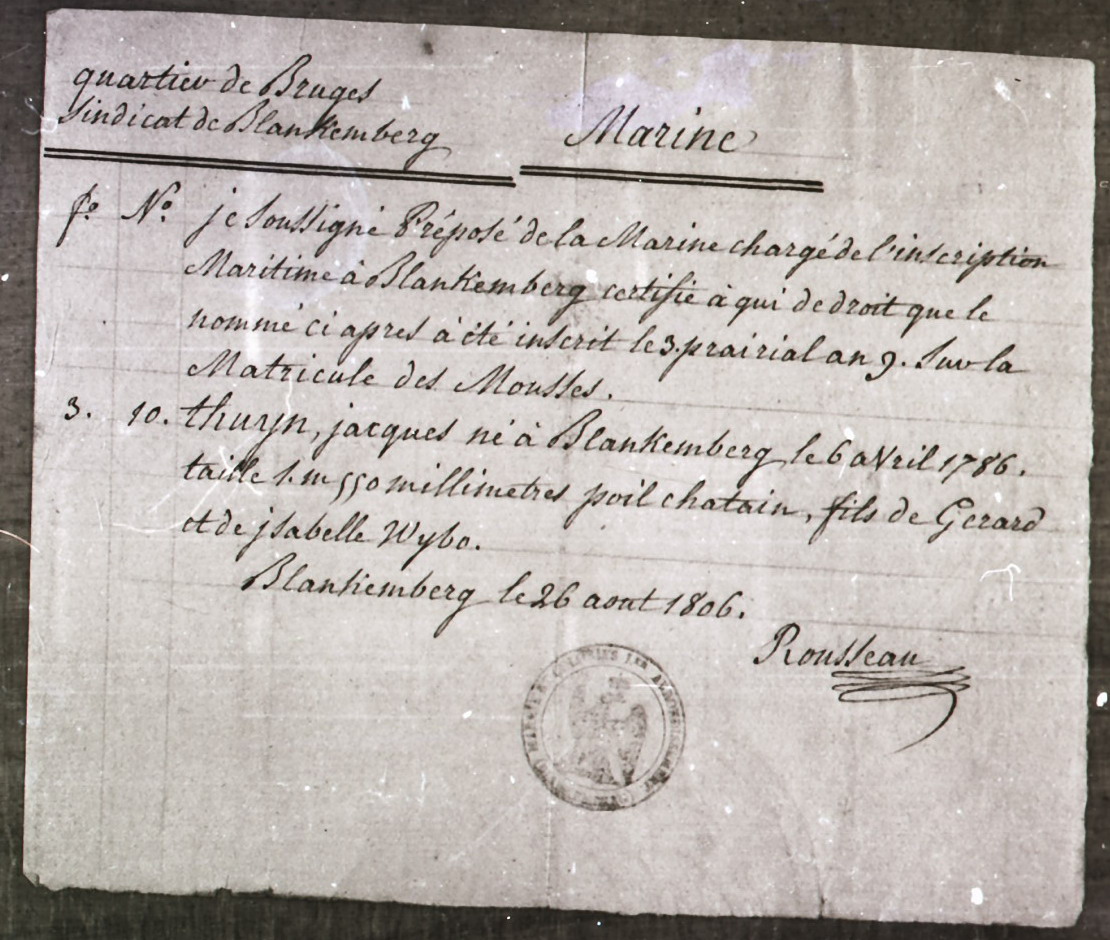 quartier de Bruges
Sindicat de Blankemberg
Marine
fo. No. je Soussigné Préposé de la Marine chargé de l'inscription
Maritime à Blankemberg certifie à qui de droit que le
nommé ci apres à été inscrit le 3. prairial an 9. Sur la
Matricule des Mousses.
3. 10. thuyn, jacques né à Blankemberg le 6 avril 1786.
taille 1. m 550 millimetres poil chatain, fils de Gerard
et de jsabelle Wybo.
Blankemberg le 26 aout 1806.
Rousseau